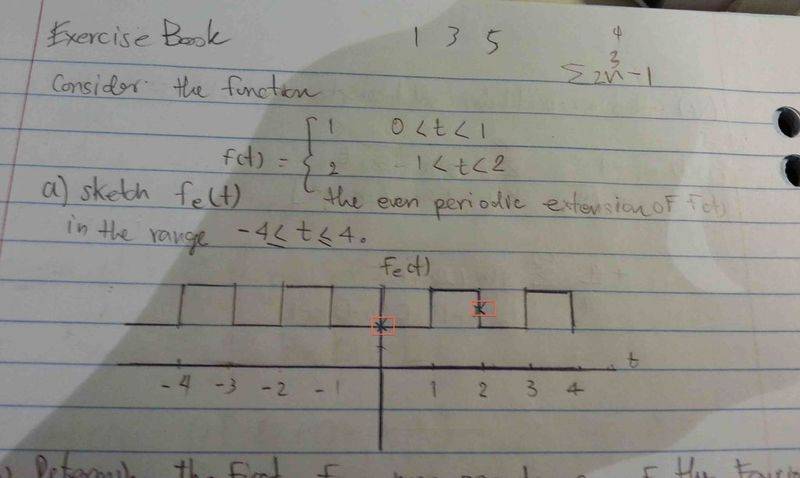 Exercise Book 1 3 5 4
3
Σ2n-1
Consider the function
f(t) = { 1 0<t<1
2 1<t<2
a) sketch fe(t) the even periodic extension of f(t)
in the range -4≤t≤4.
fe(t)
t
-4 -3 -2 -1 1 2 3 4
Determine the first of the